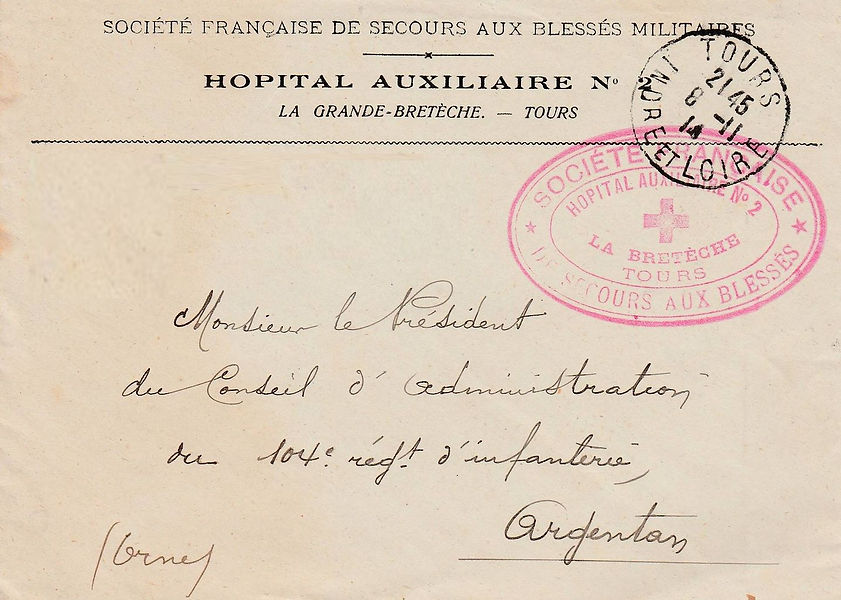 SOCIÉTÉ FRANÇAISE DE SECOURS AUX BLESSÉS MILITAIRES
HOPITAL AUXILIAIRE No 2
LA GRANDE-BRETÈCHE. — TOURS
TOURS
21 45
8 -11
14
INDRE ET LOIRE
SOCIÉTÉ FRANÇAISE
HOPITAL AUXILIAIRE No 2
LA BRETÈCHE
TOURS
DE SECOURS AUX BLESSÉS
Monsieur le Président
du Conseil d'Administration
du 104e régt d'infanterie,
Argentan
(Orne)